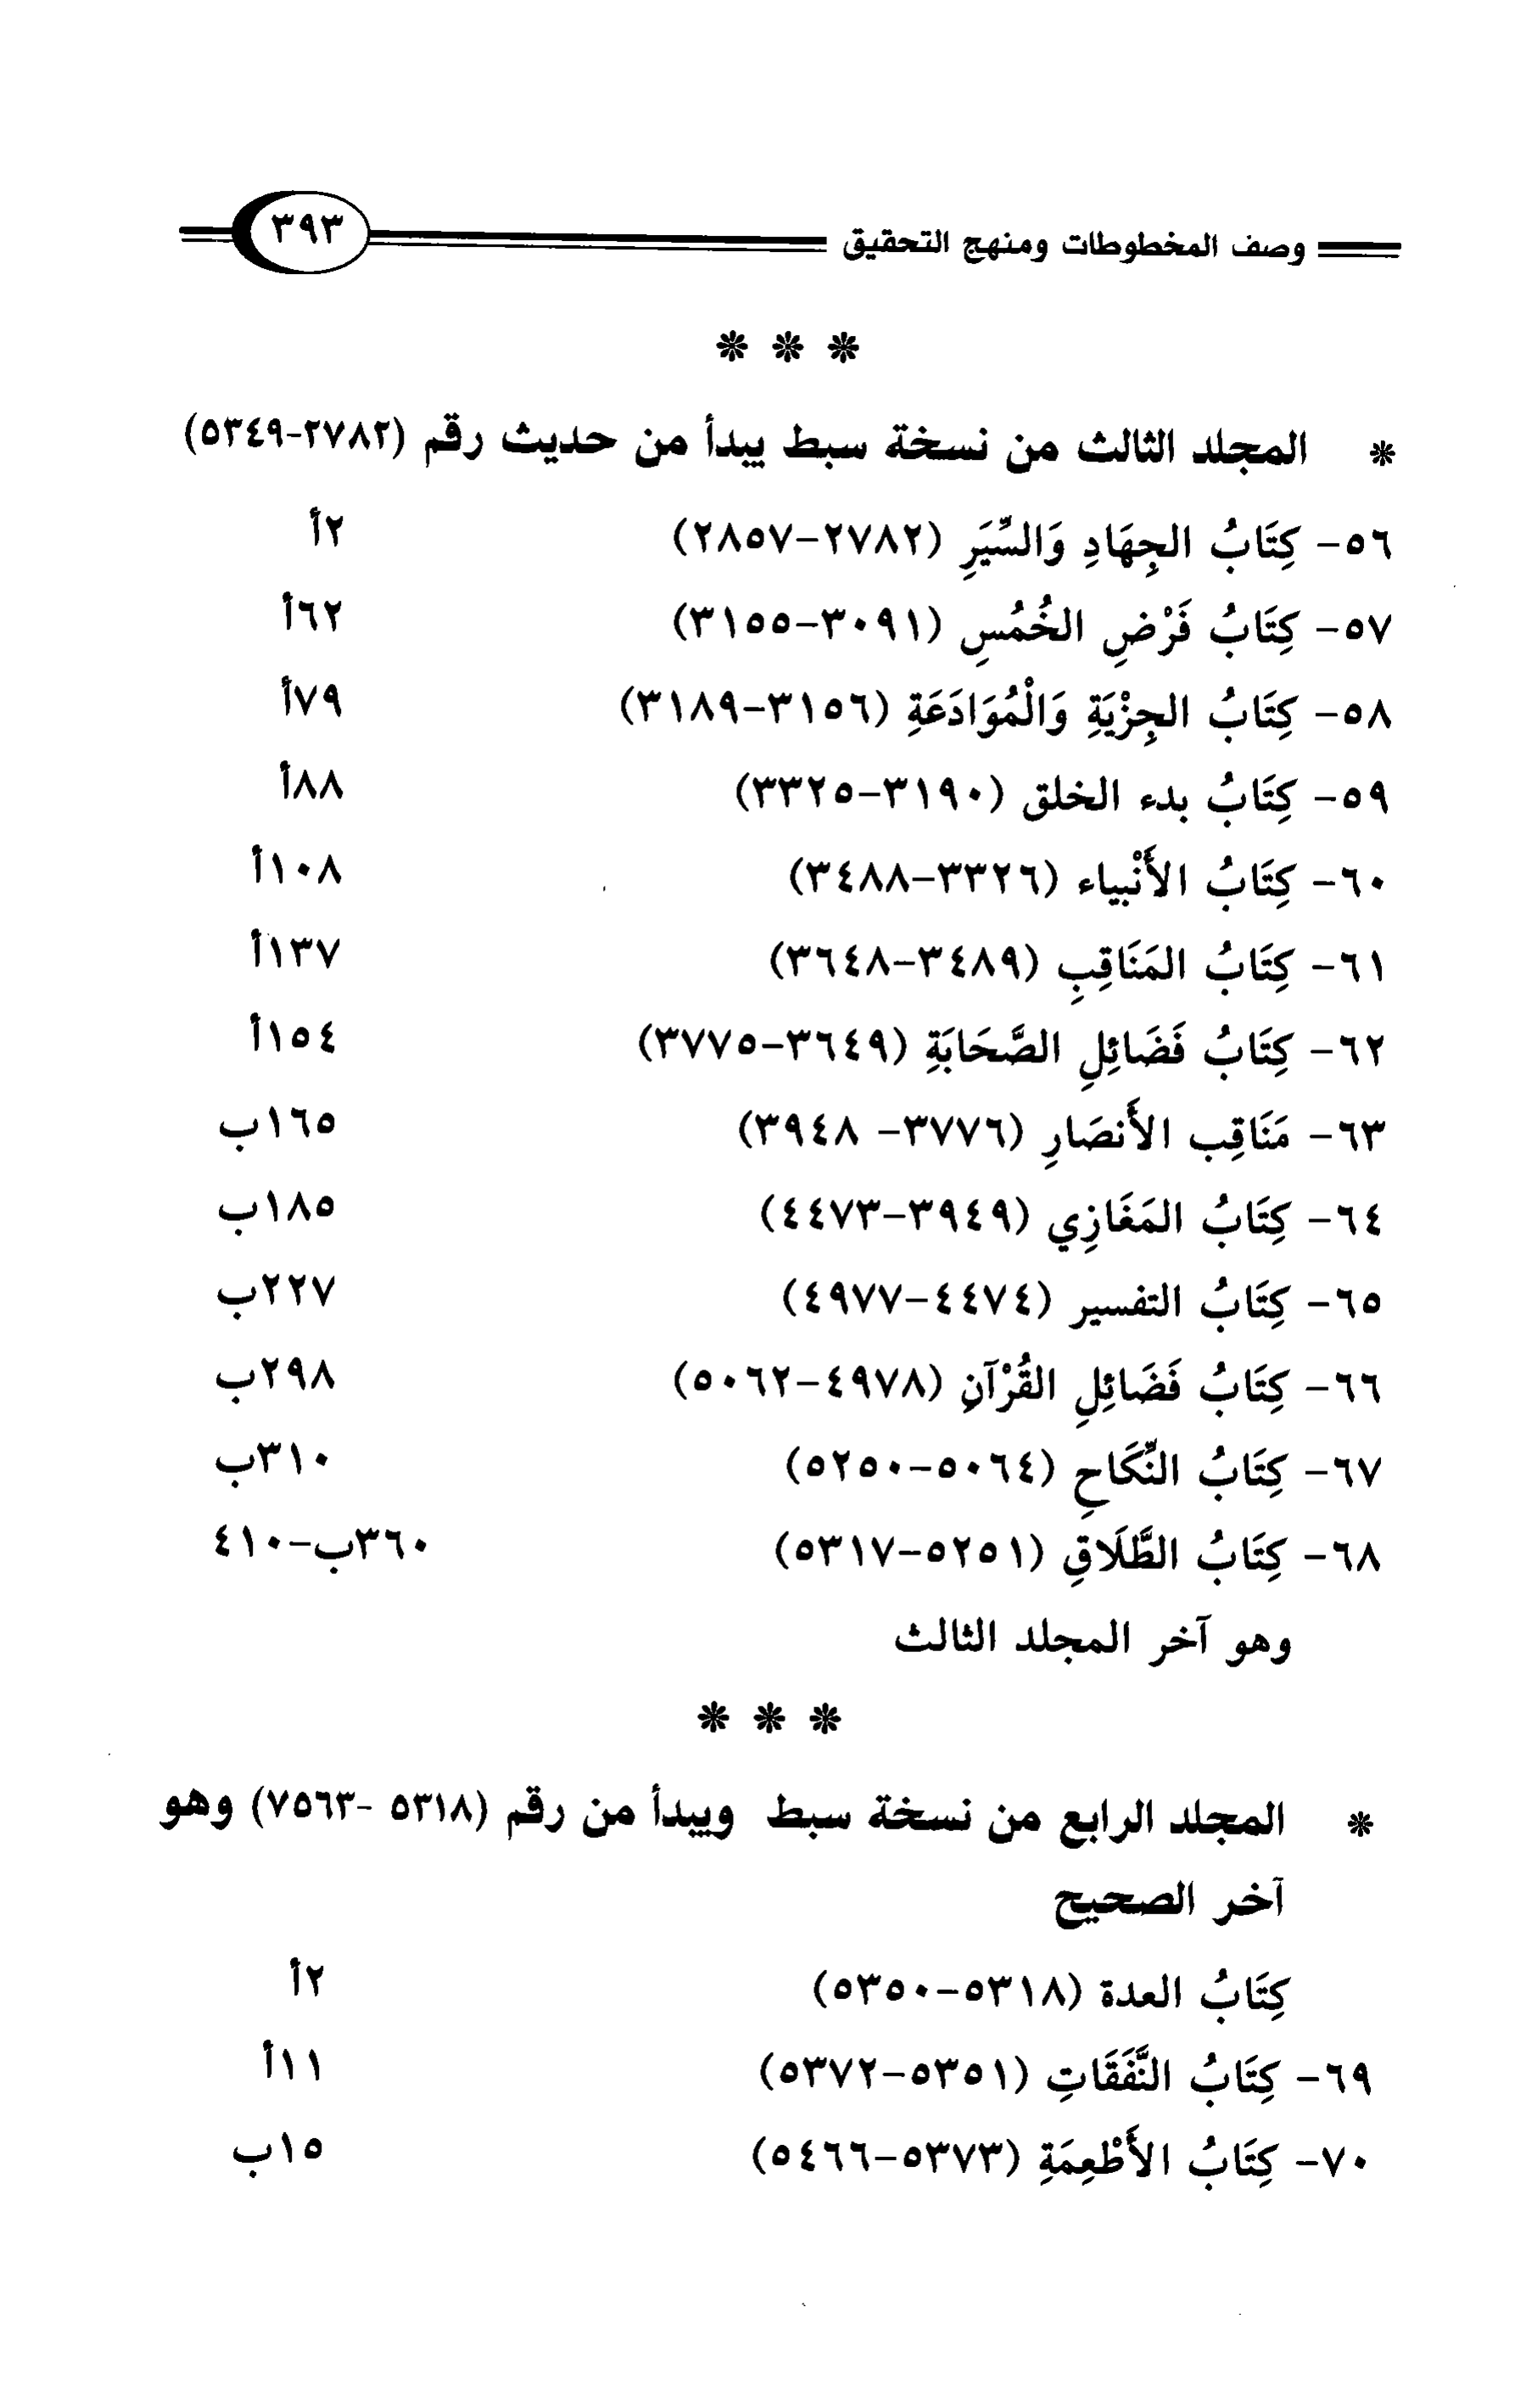 وصف المخطوطات ومنهج التحقيق ٣٩٣
* * *
* المجلد الثالث من نسخة سبط يبدأ من حديث رقم (٢٧٨٢-٥٣٤٩)
٥٦- كِتَابُ الجِهَادِ وَالسِّيَرِ (٢٧٨٢-٢٨٥٧) ٢أ
٥٧- كِتَابُ فَرْضِ الخُمُسِ (٣٠٩١-٣١٥٥) ٦٢أ
٥٨- كِتَابُ الجِزْيَةِ وَالْمُوَادَعَةِ (٣١٥٦-٣١٨٩) ٧٩أ
٥٩- كِتَابُ بدء الخلق (٣١٩٠-٣٣٢٥) ٨٨أ
٦٠- كِتَابُ الأَنْبياء (٣٣٢٦-٣٤٨٨) ١٠٨أ
٦١- كِتَابُ المَنَاقِبِ (٣٤٨٩-٣٦٤٨) ١٣٧أ
٦٢- كِتَابُ فَضَائِلِ الصَّحَابَةِ (٣٦٤٩-٣٧٧٥) ١٥٤أ
٦٣- مَنَاقِب الأَنصَارِ (٣٧٧٦- ٣٩٤٨) ١٦٥ب
٦٤- كِتَابُ المَغَازِي (٣٩٤٩-٤٤٧٣) ١٨٥ب
٦٥- كِتَابُ التفسير (٤٤٧٤-٤٩٧٧) ٢٢٧ب
٦٦- كِتَابُ فَضَائِلِ القُرْآنِ (٤٩٧٨-٥٠٦٢) ٢٩٨ب
٦٧- كِتَابُ النِّكَاحِ (٥٠٦٤-٥٢٥٠) ٣١٠ب
٦٨- كِتَابُ الطَّلَاقِ (٥٢٥١-٥٣١٧) ٣٦٠ب-٤١٠
وهو آخر المجلد الثالث
* * *
* المجلد الرابع من نسخة سبط ويبدأ من رقم (٥٣١٨ -٧٥٦٣) وهو
آخر الصحيح
كِتَابُ العدة (٥٣١٨-٥٣٥٠) ٢أ
٦٩- كِتَابُ النَّفَقَاتِ (٥٣٥١-٥٣٧٢) ١١أ
٧٠- كِتَابُ الأَطْعِمَةِ (٥٣٧٣-٥٤٦٦) ١٥ب